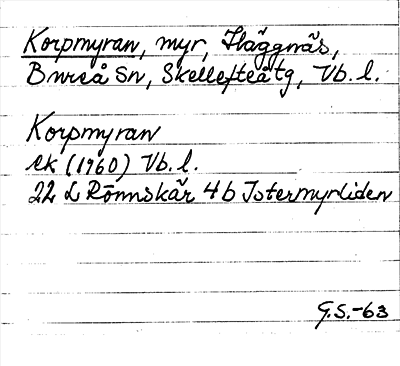 Korpmyran, myr, Häggnäs,
Bureå sn, Skellefteå tg, Vb. l.
Korpmyran
ek (1960) Vb. l.
22 L Rönnskär 4 b Istermyrliden
G.S.-63